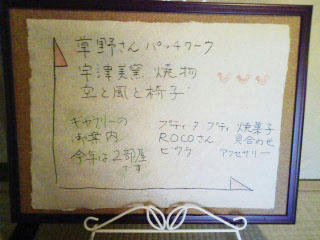 草野さん パッチワーク
宇津美窯 焼物
空と風と椅子
ギャラリーの
御案内
今年は2部屋
です
プティ タ プティ 焼菓子
ROCOさん 貝合わせ
ピクタ アクセサリー